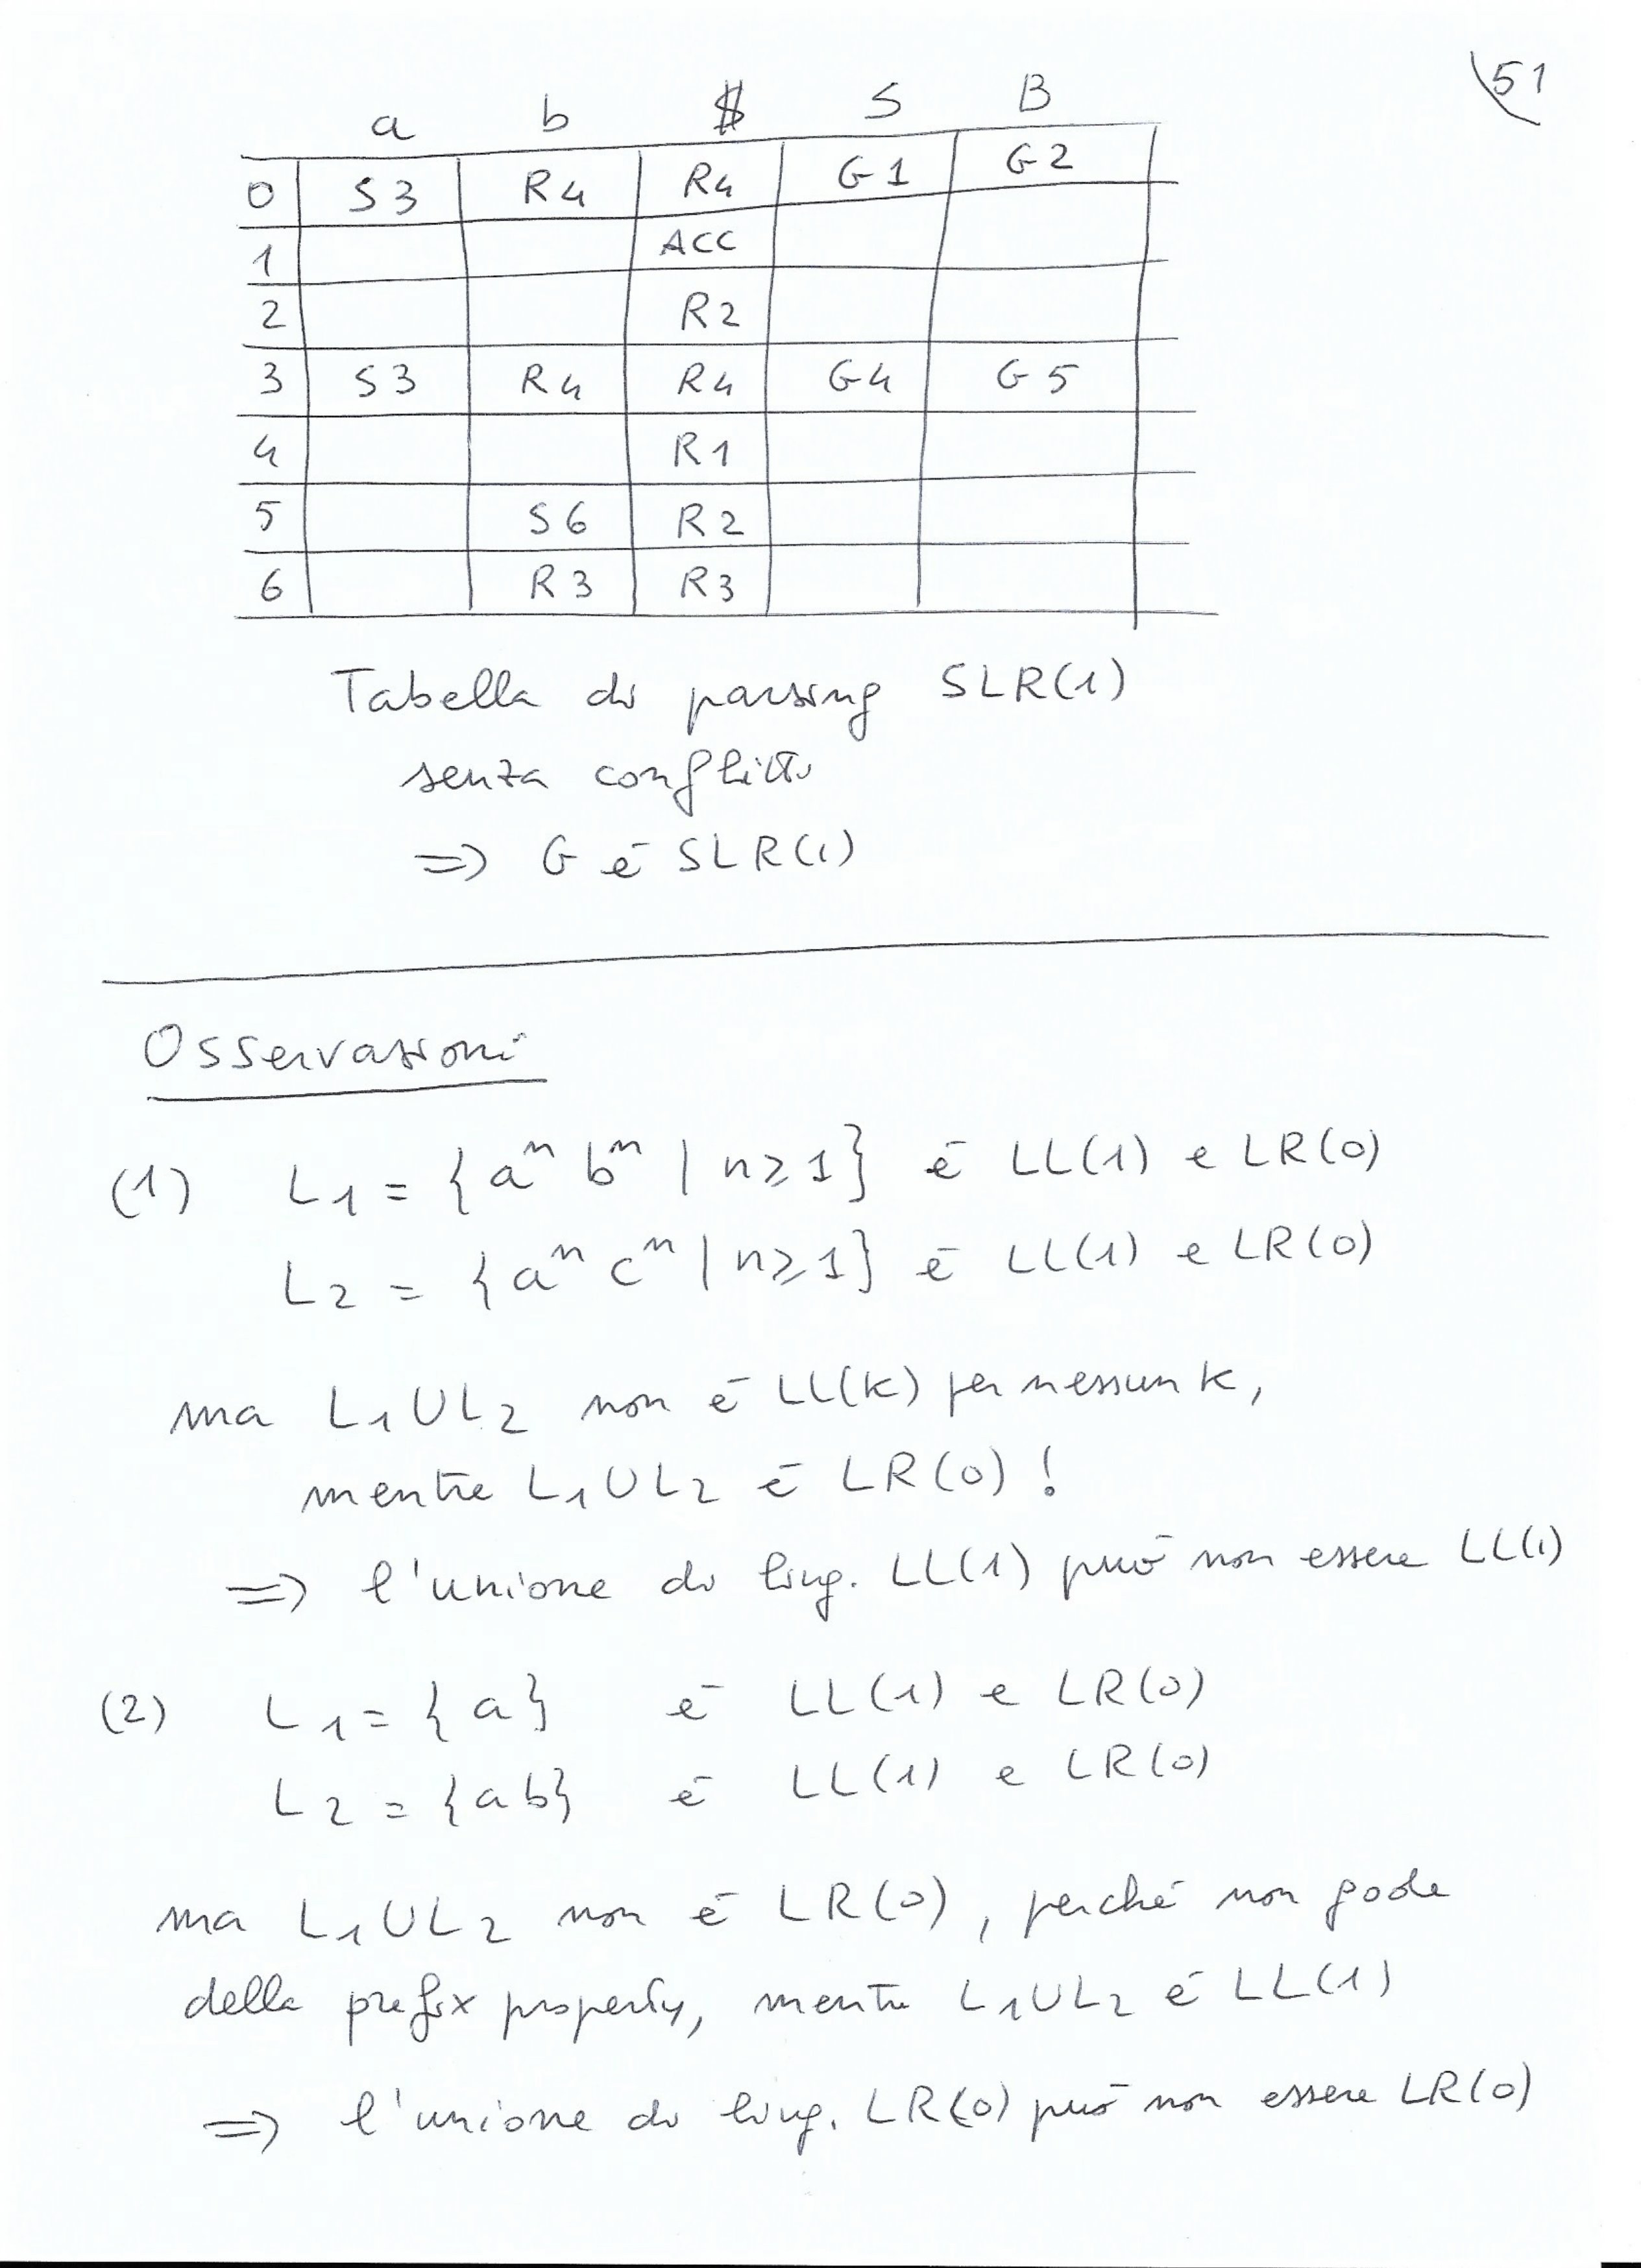 51
a b $ S B
0 S3 R4 R4 G1 G2
1 ACC
2 R2
3 S3 R4 R4 G4 G5
4 R1
5 S6 R2
6 R3 R3
Tabella di parsing SLR(1)
senza conflitti
=> G è SLR(1)
Osservazioni
(1) L₁ = {aⁿ bⁿ | n≥1} è LL(1) e LR(0)
L₂ = {aⁿ cⁿ | n≥1} è LL(1) e LR(0)
ma L₁∪L₂ non è LL(k) per nessun k,
mentre L₁∪L₂ è LR(0)!
=> l'unione di ling. LL(1) può non essere LL(1)
(2) L₁ = {a} è LL(1) e LR(0)
L₂ = {ab} è LL(1) e LR(0)
ma L₁∪L₂ non è LR(0), perché non gode
della prefix property, mentre L₁∪L₂ è LL(1)
=> l'unione di ling. LR(0) può non essere LR(0)